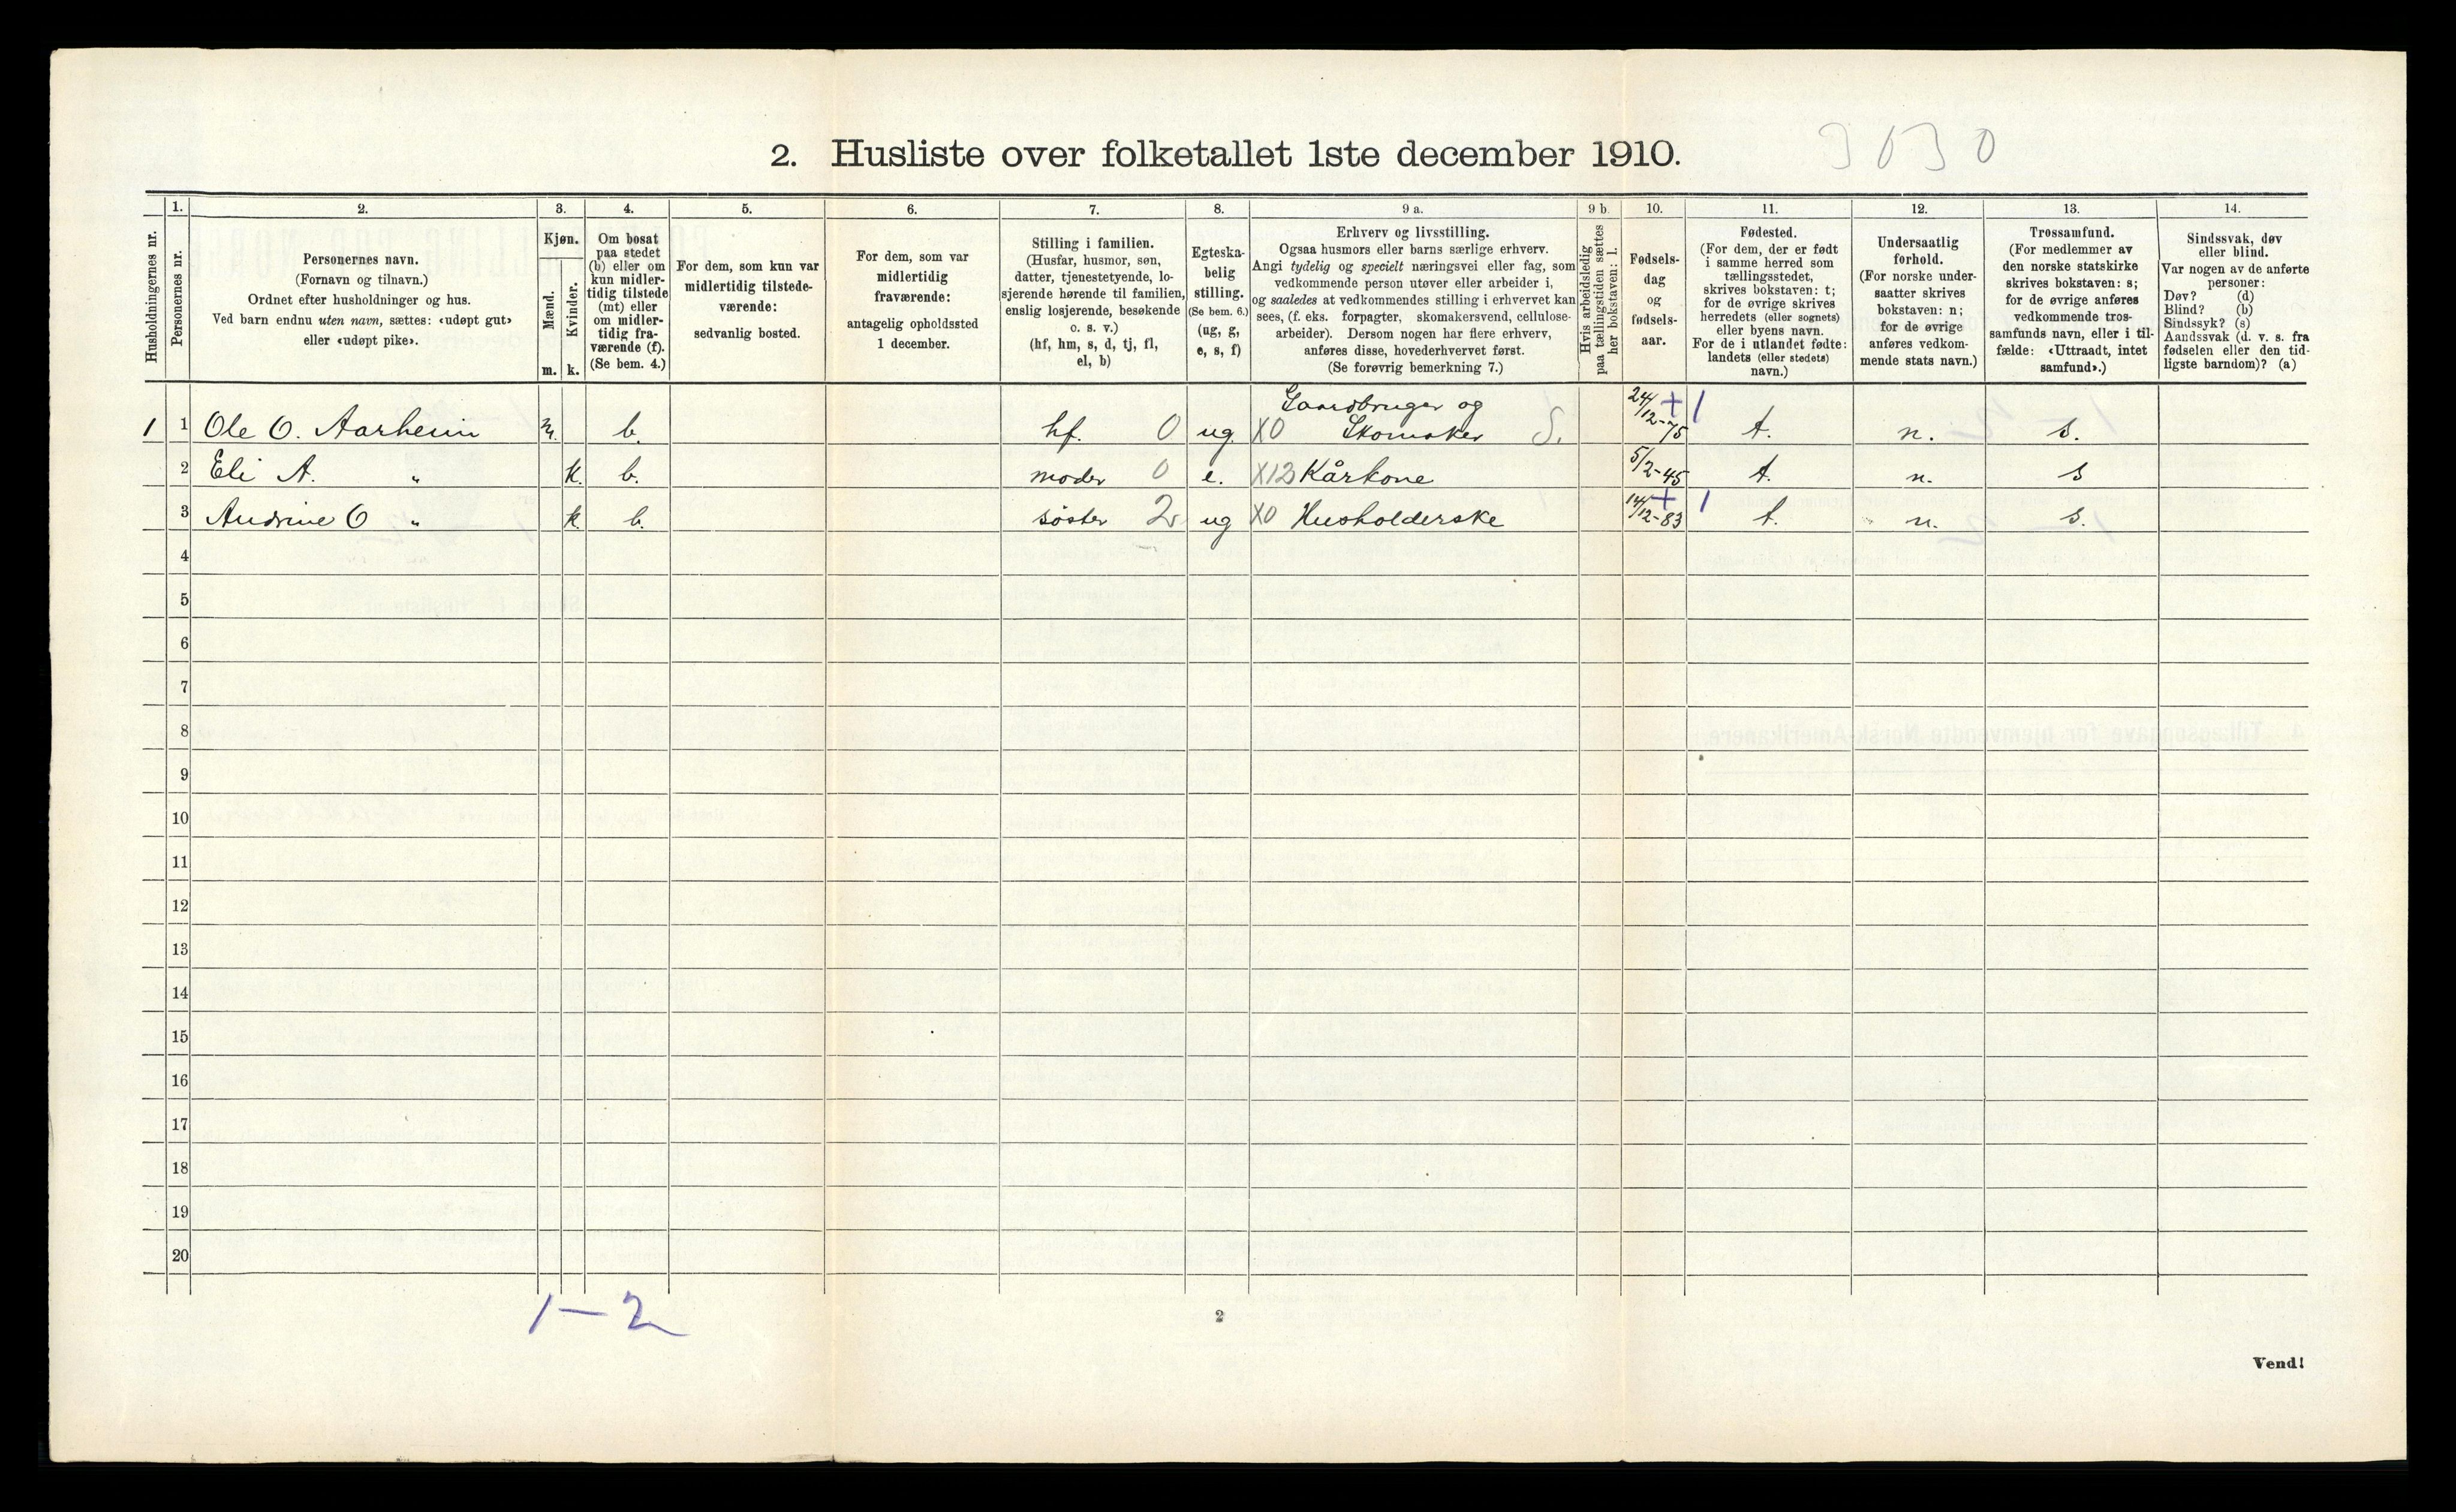 2. Husliste over folketallet 1ste december 1910.
3030
Husholdningernes nr.
1.
Personernes nr.
2.
Personernes navn.
(Fornavn og tilnavn.)
Ordnet efter husholdninger og hus.
Ved barn endnu uten navn, sættes: «udøpt gut»
eller «udøpt pike».
3.
Kjøn.
Mænd.
Kvinder.
m. k.
4.
Om bosat
paa stedet
(b) eller om
kun midler-
tidig tilstede
(mt) eller
om midler-
tidig fra-
værende (f).
(Se bem. 4.)
5.
For dem, som kun var
midlertidig tilstede-
værende:
sedvanlig bosted.
6.
For dem, som var
midlertidig
fraværende:
antagelig opholdssted
1 december.
7.
Stilling i familien.
(Husfar, husmor, søn,
datter, tjenestetyende, lo-
sjerende hørende til familien,
enslig losjerende, besøkende
o. s. v.)
(hf, hm, s, d, tj, fl,
el, b)
8.
Egteska-
belig
stilling.
(Se bem. 6.)
(ug, g,
e, s, f)
9 a.
Erhverv og livsstilling.
Ogsaa husmors eller barns særlige erhverv.
Angi tydelig og specielt næringsvei eller fag, som
vedkommende person utøver eller arbeider i,
og saaledes at vedkommendes stilling i erhvervet kan
sees, (f. eks. forpagter, skomakersvend, cellulose-
arbeider). Dersom nogen har flere erhverv,
anføres disse, hovederhvervet først.
(Se forøvrig bemerkning 7.)
9 b.
Hvis arbeidsledig
paa tællingstiden sættes
her bokstaven: l.
10.
Fødsels-
dag
og
fødsels-
aar.
11.
Fødested.
(For dem, der er født
i samme herred som
tællingsstedet,
skrives bokstaven: t;
for de øvrige skrives
herredets (eller sognets)
eller byens navn.
For de i utlandet fødte:
landets (eller stedets)
navn.)
12.
Undersaatlig
forhold.
(For norske under-
saatter skrives
bokstaven: n;
for de øvrige
anføres vedkom-
mende stats navn.)
13.
Trossamfund.
(For medlemmer av
den norske statskirke
skrives bokstaven: s;
for de øvrige anføres
vedkommende tros-
samfunds navn, eller i til-
fælde: «Uttraadt, intet
samfund».)
14.
Sindssvak, døv
eller blind.
Var nogen av de anførte
personer:
Døv? (d)
Blind? (b)
Sindssyk? (s)
Aandssvak (d. v. s. fra
fødselen eller den tid-
ligste barndom)? (a)
Gaardbruger og
1 1 Ole O. Aarheim m. b. hf. 0 ug. X0 Skomaker S. 24/12-75 + 1 t. n. s.
2 Eli A. " k. b. moder 0 e. X12 Kårkone 5/2-45 t. n. s
3 Andrine O " k b. søster 2 ug X0 Husholderske 14/12-83 + 1 t. n. s.
4
5
6
7
8
9
10
11
12
13
14
15
16
17
18
19
20
1-2
2
Vend!